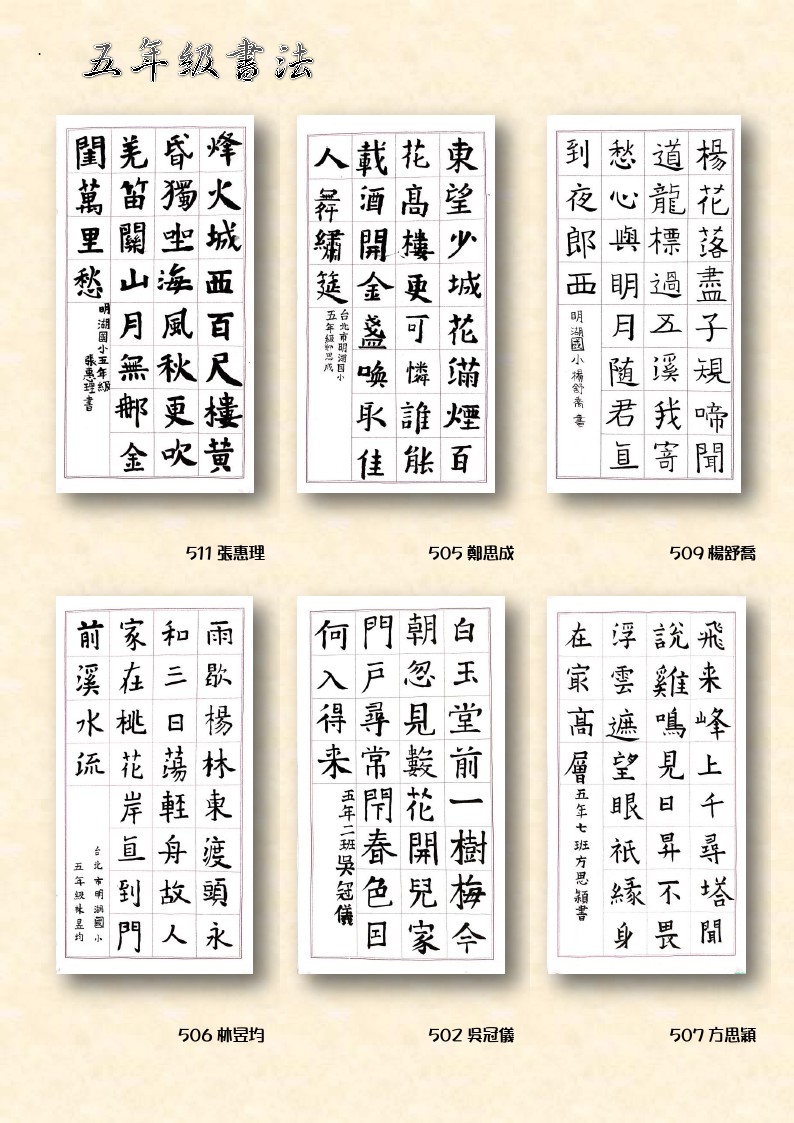 五年級書法
烽火城西百尺樓黃
昏獨坐海風秋更吹
羌笛關山月無那金
閨萬里愁
明湖國小五年級
張惠理書
511 張惠理
東望少城花滿煙百
花高樓更可憐誰能
載酒開金盞喚取佳
人舞繡筵
台北市明湖國小
五年級鄭思成
505 鄭思成
楊花落盡子規啼聞
道龍標過五溪我寄
愁心與明月随君直
到夜郎西
明湖國小楊舒喬書
509 楊舒喬
雨歇楊林東渡頭永
和三日蕩軽舟故人
家在桃花岸直到門
前溪水流
台北市明湖國小
五年級林昱均
506 林昱均
白玉堂前一樹梅今
朝忽見數花開兒家
門戶尋常閇春色因
何入得来
五年二班吳冠儀
502 吳冠儀
飛来峰上千尋塔聞
說雞鳴見日昇不畏
浮雲遮望眼祇緣身
在最高層
五年七班方思穎書
507 方思穎